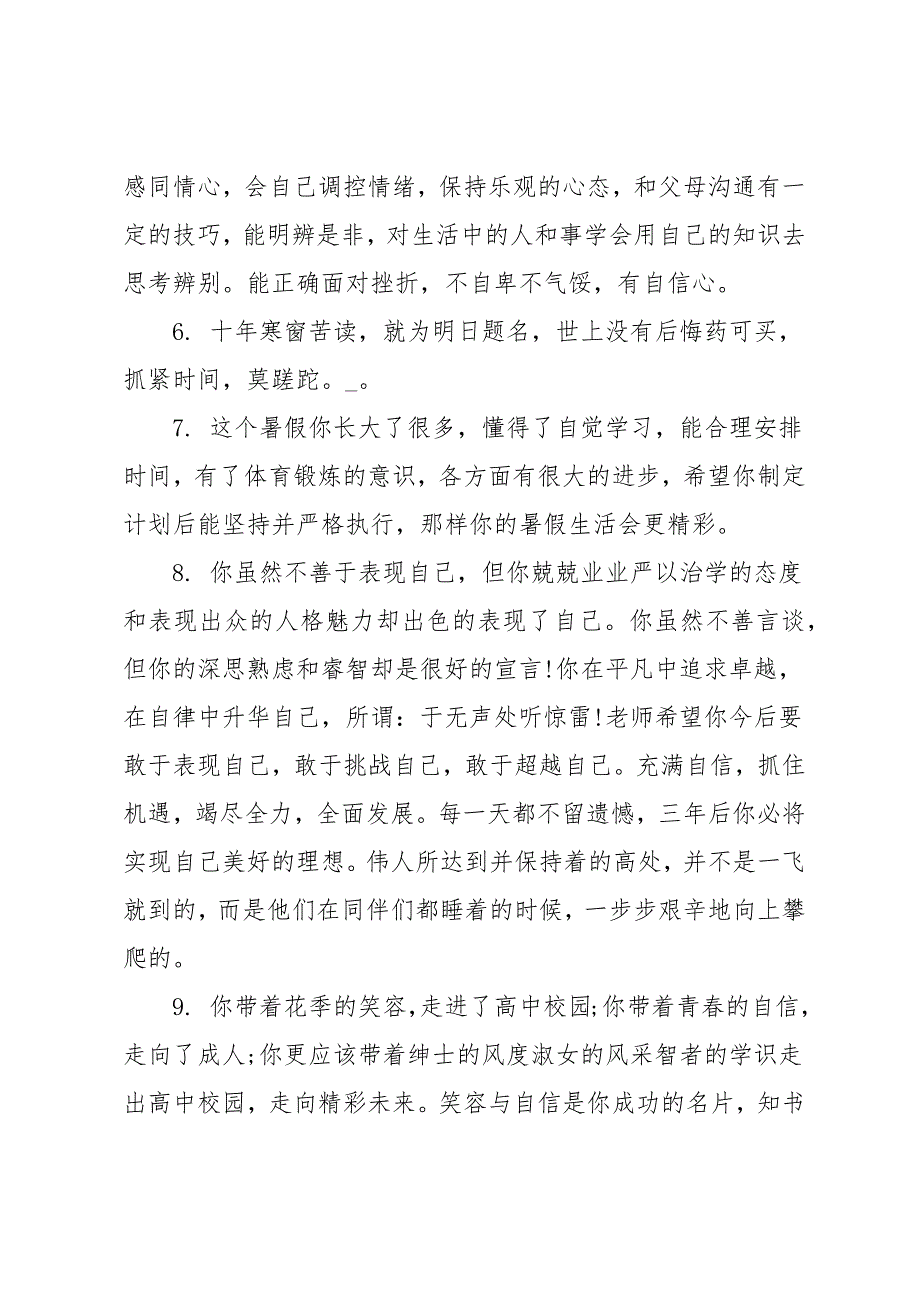 感同情心，会自己调控情绪，保持乐观的心态，和父母沟通有一
定的技巧，能明辨是非，对生活中的人和事学会用自己的知识去
思考辨别。能正确面对挫折，不自卑不气馁，有自信心。
6. 十年寒窗苦读，就为明日题名，世上没有后悔药可买，
抓紧时间，莫蹉跎。_。
7. 这个暑假你长大了很多，懂得了自觉学习，能合理安排
时间，有了体育锻炼的意识，各方面有很大的进步，希望你制定
计划后能坚持并严格执行，那样你的暑假生活会更精彩。
8. 你虽然不善于表现自己，但你兢兢业业严以治学的态度
和表现出众的人格魅力却出色的表现了自己。你虽然不善言谈，
但你的深思熟虑和睿智却是很好的宣言!你在平凡中追求卓越，
在自律中升华自己，所谓：于无声处听惊雷!老师希望你今后要
敢于表现自己，敢于挑战自己，敢于超越自己。充满自信，抓住
机遇，竭尽全力，全面发展。每一天都不留遗憾，三年后你必将
实现自己美好的理想。伟人所达到并保持着的高处，并不是一飞
就到的，而是他们在同伴们都睡着的时候，一步步艰辛地向上攀
爬的。
9. 你带着花季的笑容，走进了高中校园;你带着青春的自信，
走向了成人;你更应该带着绅士的风度淑女的风采智者的学识走
出高中校园，走向精彩未来。笑容与自信是你成功的名片，知书